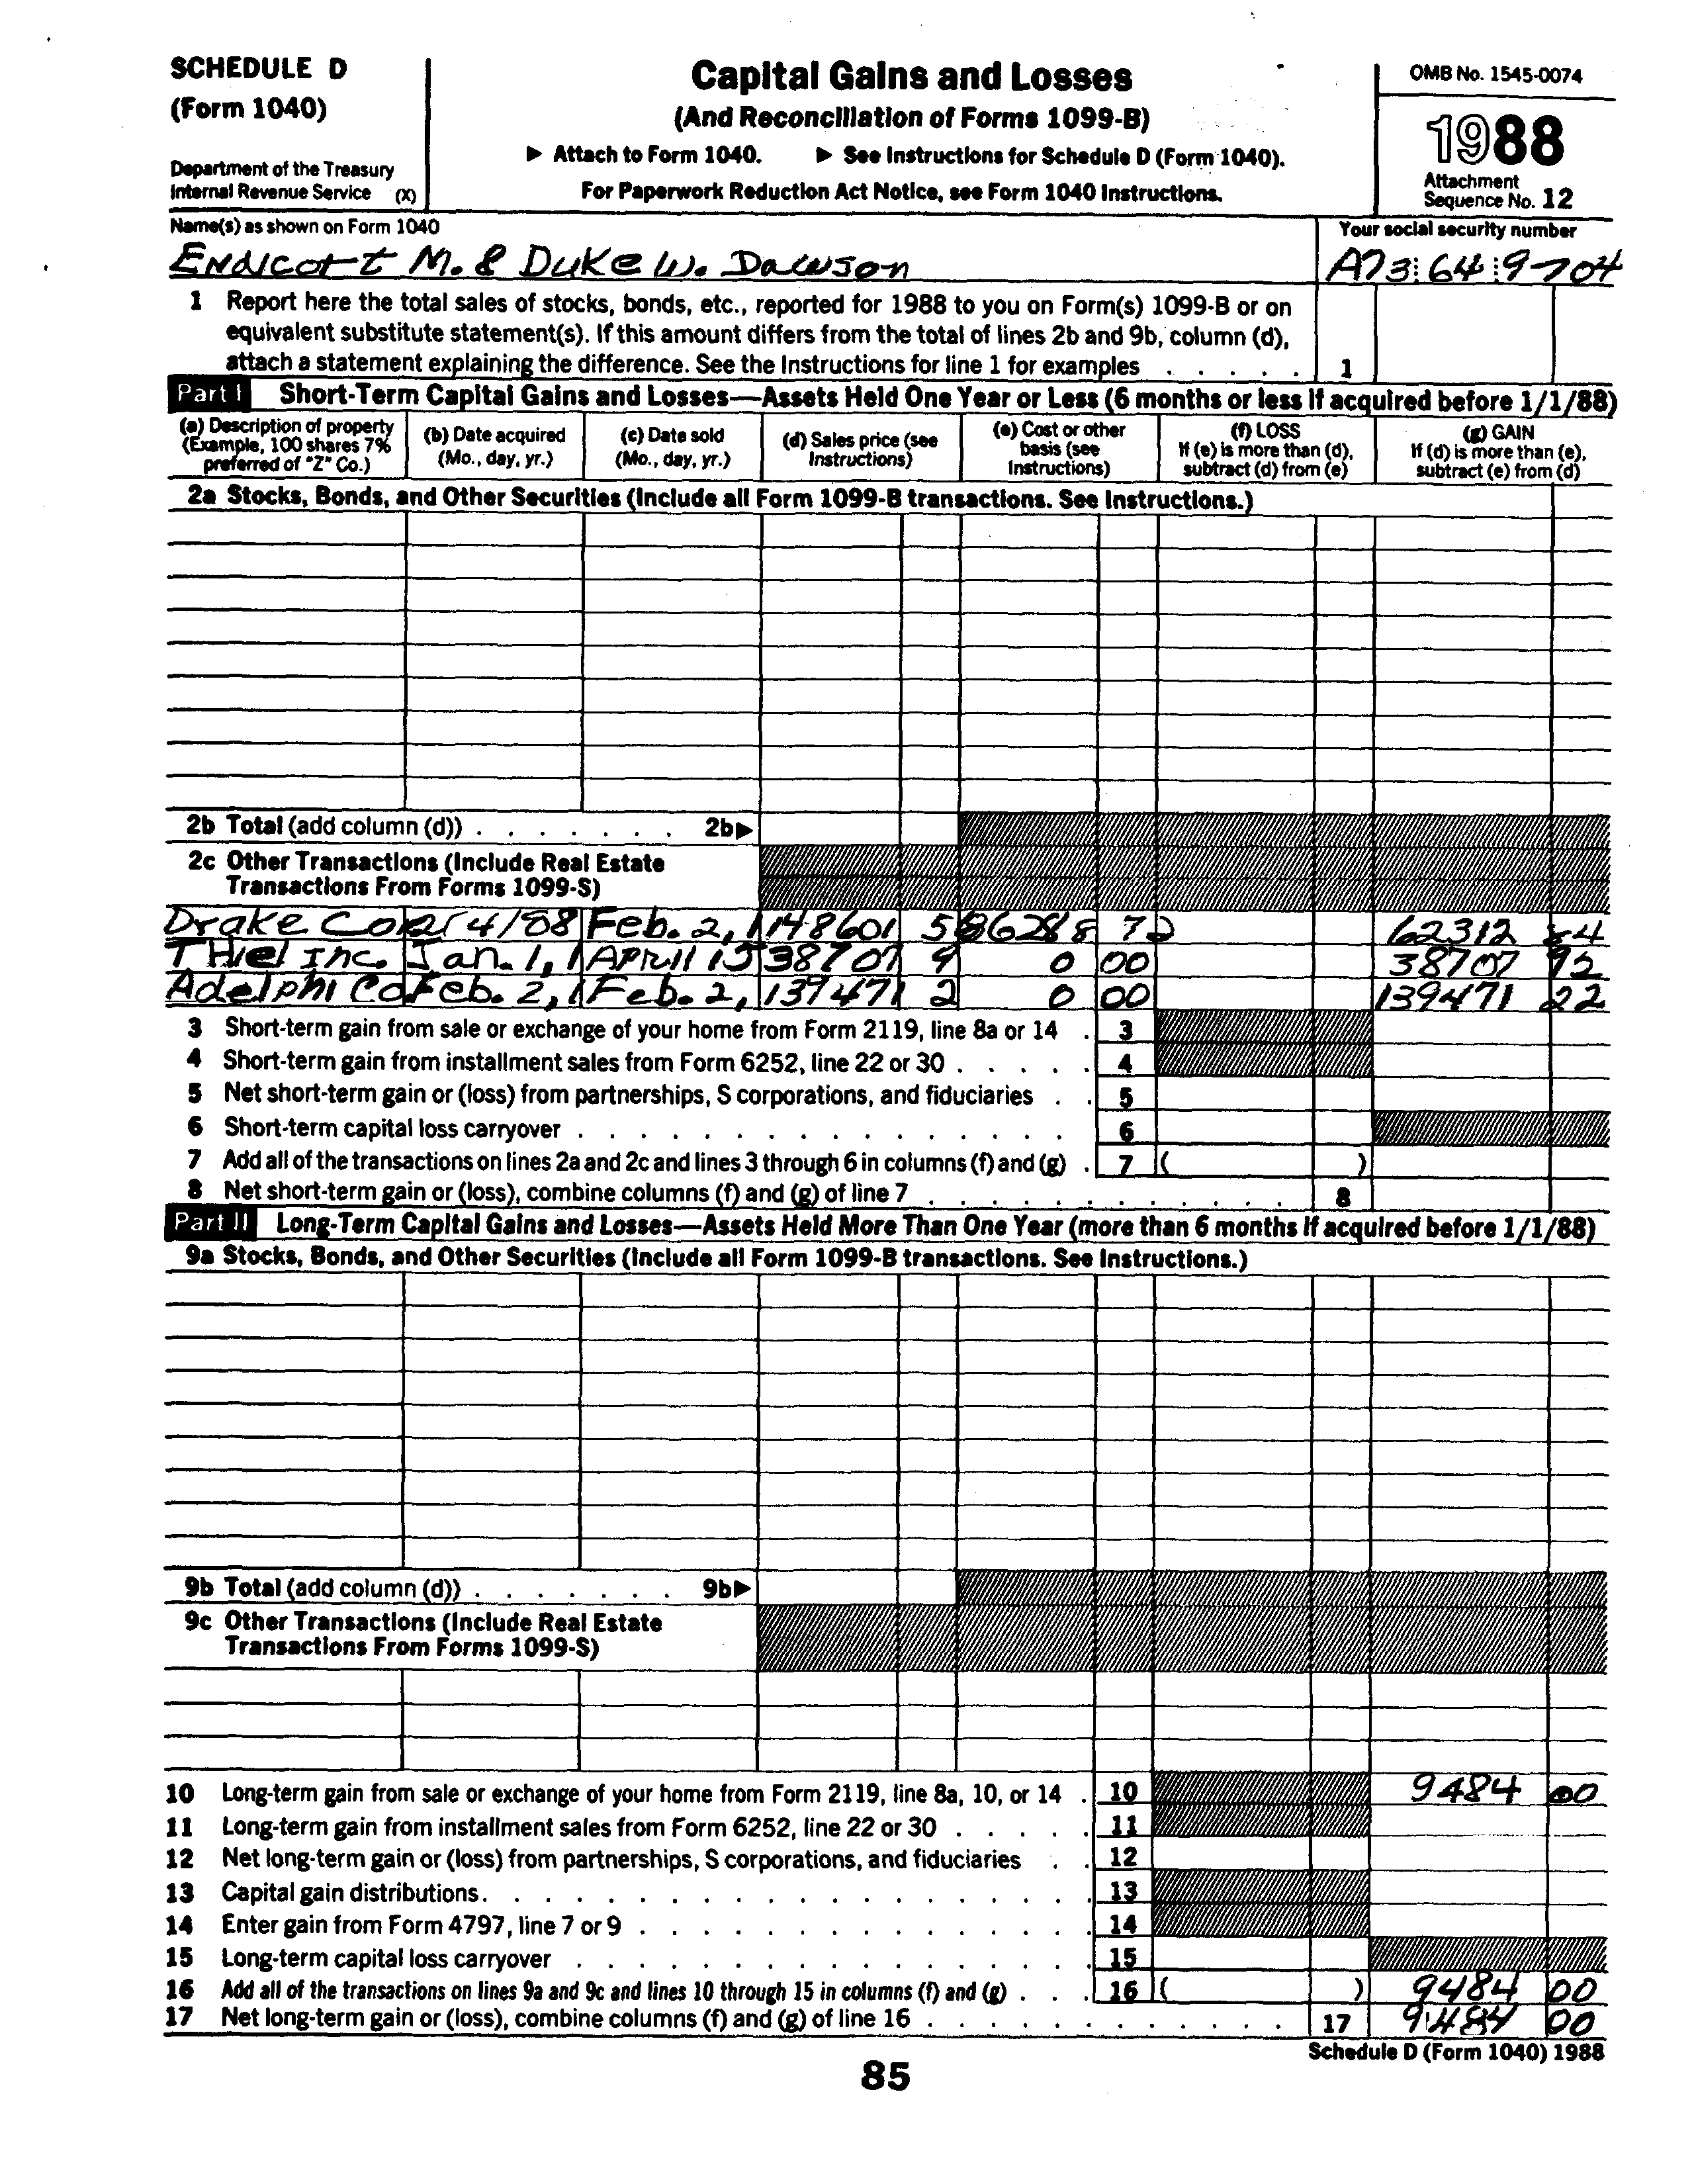 SCHEDULE D
(Form 1040)
Department of the Treasury
Internal Revenue Service (X)
Capital Gains and Losses
(And Reconciliation of Forms 1099-B)
▶ Attach to Form 1040. ▶ See Instructions for Schedule D (Form 1040).
For Paperwork Reduction Act Notice, see Form 1040 Instructions.
OMB No. 1545-0074
1988
Attachment
Sequence No. 12
Name(s) as shown on Form 1040
Endicott M. & Duke W. Dawson
Your social security number
A73 64 9704
1 Report here the total sales of stocks, bonds, etc., reported for 1988 to you on Form(s) 1099-B or on
equivalent substitute statement(s). If this amount differs from the total of lines 2b and 9b, column (d),
attach a statement explaining the difference. See the Instructions for line 1 for examples . . . . . 1
Part I Short-Term Capital Gains and Losses—Assets Held One Year or Less (6 months or less if acquired before 1/1/88)
(a) Description of property
(Example, 100 shares 7%
preferred of "Z" Co.)
(b) Date acquired
(Mo., day, yr.)
(c) Date sold
(Mo., day, yr.)
(d) Sales price (see
Instructions)
(e) Cost or other
basis (see
Instructions)
(f) LOSS
If (e) is more than (d),
subtract (d) from (e)
(g) GAIN
If (d) is more than (e),
subtract (e) from (d)
2a Stocks, Bonds, and Other Securities (Include all Form 1099-B transactions. See Instructions.)
2b Total (add column (d)) . . . . . . . 2b▶
2c Other Transactions (Include Real Estate
Transactions From Forms 1099-S)
Drake 4/88 Feb. 2, 1 148601 5 86288 72 62312 84
THiel Inc. Jan. 1, 1 April 15 38707 9 0 00 38707 92
Adelphi Co Feb. 2, 1 Feb. 2, 139471 2 0 00 139471 22
3 Short-term gain from sale or exchange of your home from Form 2119, line 8a or 14 . 3
4 Short-term gain from installment sales from Form 6252, line 22 or 30 . . . . . 4
5 Net short-term gain or (loss) from partnerships, S corporations, and fiduciaries . . 5
6 Short-term capital loss carryover . . . . . . . . . . . . . . . . 6
7 Add all of the transactions on lines 2a and 2c and lines 3 through 6 in columns (f) and (g) . 7 ( )
8 Net short-term gain or (loss), combine columns (f) and (g) of line 7 . . . . . . . . . . . . 8
Part II Long-Term Capital Gains and Losses—Assets Held More Than One Year (more than 6 months if acquired before 1/1/88)
9a Stocks, Bonds, and Other Securities (Include all Form 1099-B transactions. See Instructions.)
9b Total (add column (d)) . . . . . . . 9b▶
9c Other Transactions (Include Real Estate
Transactions From Forms 1099-S)
10 Long-term gain from sale or exchange of your home from Form 2119, line 8a, 10, or 14 . 10 9484 00
11 Long-term gain from installment sales from Form 6252, line 22 or 30 . . . . . 11
12 Net long-term gain or (loss) from partnerships, S corporations, and fiduciaries . . 12
13 Capital gain distributions. . . . . . . . . . . . . . . . . . . . 13
14 Enter gain from Form 4797, line 7 or 9 . . . . . . . . . . . . . . 14
15 Long-term capital loss carryover . . . . . . . . . . . . . . . . 15
16 Add all of the transactions on lines 9a and 9c and lines 10 through 15 in columns (f) and (g) . . . 16 ( ) 9484 00
17 Net long-term gain or (loss), combine columns (f) and (g) of line 16 . . . . . . . . . . . . 17 9484 00
Schedule D (Form 1040) 1988
85